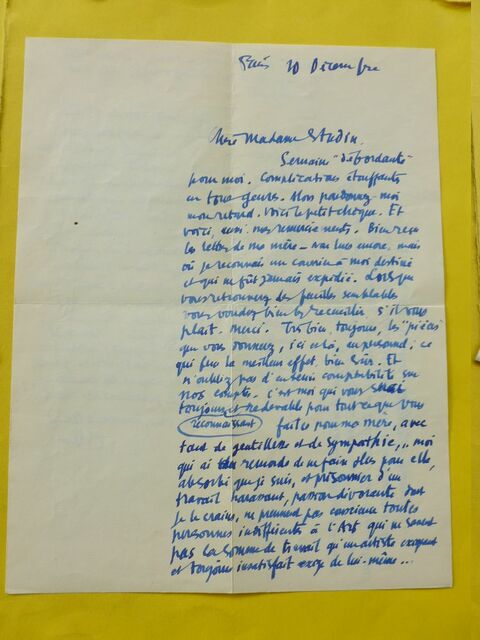 Paris 10 Décembre
Chère Madame Studin
Semaine "débordante"
pour moi. Complications étouffantes
en tous genres. Alors pardonnez-moi
mon retard. Voici le petit chèque. Et
voici, aussi, mes remerciements. Bien reçu
les lettres de ma mère – non lues encore, mais
où je reconnais un courrier à moi destiné
et qui ne fût jamais expédié. Lorsque
vous retrouverez des feuilles semblables
vous voudrez bien les recueillir s'il vous
plait. Merci. Très bien, toujours, les "pièces"
que vous donnez, ici et là, au personnel, ce
qui fera le meilleur effet, bien sûr. Et
n'oubliez pas d'en tenir comptabilité sur
nos comptes. C'est moi qui vous suis
toujours et redevable pour tout ce que vous
reconnaissant faites pour ma mère, avec
tant de gentillesse et de sympathie,.. moi
qui ai tant remords de ne faire plus pour elle,
absorbé que je suis, et prisonnier d'un
travail harassant, passion dévorante dont
je le crains, ne prennent pas conscience toutes
personnes indifférentes à l'Art qui ne savent
pas la somme de travail qu'un artiste exigeant
et toujours insatisfait exige de lui-même...